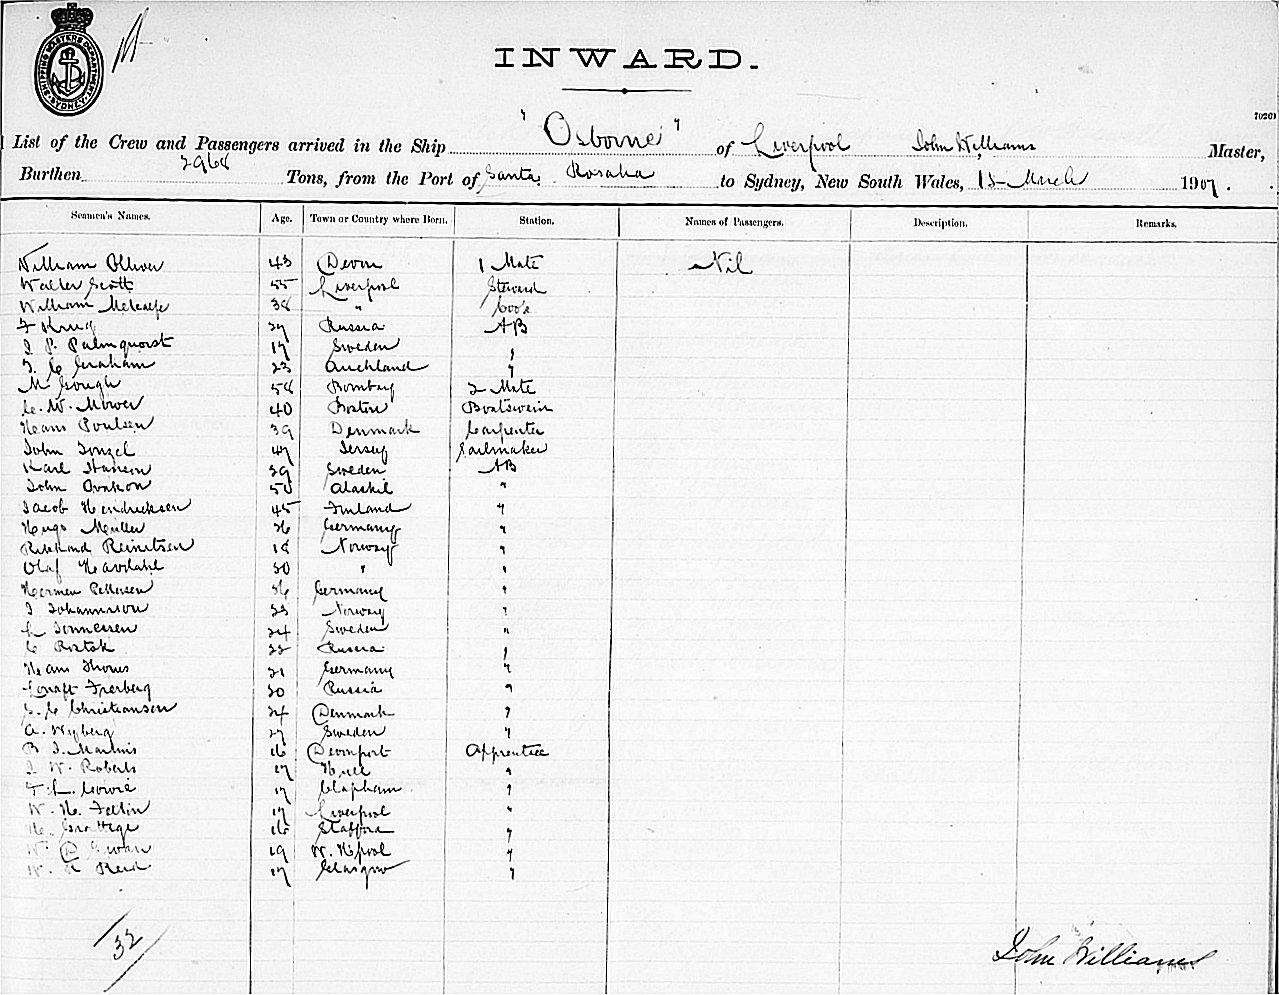 SHIPPING MASTERS DEPARTMENT SYDNEY
INWARD.
List of the Crew and Passengers arrived in the Ship "Osborne" of Liverpool John Williams Master,
Burthen 2968 Tons, from the Port of Santa Rosalia to Sydney, New South Wales, 15 March 1907.
Seamen's Names. Age. Town or Country where Born. Station. Names of Passengers. Description. Remarks.
William Oliver 43 Devon 1 Mate Nil
Walter Scott 55 Liverpool Steward
William Metcalfe 38 " Cook
F Krug 27 Russia AB
J P. Palmquist 17 Sweden "
T. C Graham 23 Auckland "
M Gough 58 Bombay 2 Mate
C. W. Mower 40 Boston Boatswain
Hans Poulsen 39 Denmark Carpenter
John 47 Jersey Sailmaker
Karl Hansen 29 Sweden AB
John 50 "
Jacob Hendricksen 45 Finland "
Hugo Muller 26 Germany "
Reinitsen 18 Norway "
Olaf 30 " "
Herman Pettersen 26 Germany "
J Johannson 23 Norway "
Sonnessen 24 Sweden "
C Rostok 22 Russia "
Hans Thoms 21 Germany "
Frerberg 20 Russia "
C Christiansen 24 Denmark "
A. Nyberg 27 Sweden "
B J. Martins 16 Devonport Apprentice
J W. Roberts 17 Hull "
T. L. Cowie 17 Clapham "
W. H. 17 Liverpool "
H. Grattige 16 Stafford "
W. D Swan 19 W. Hpool "
W. Reid 17 Glasgow "
32
John Williams